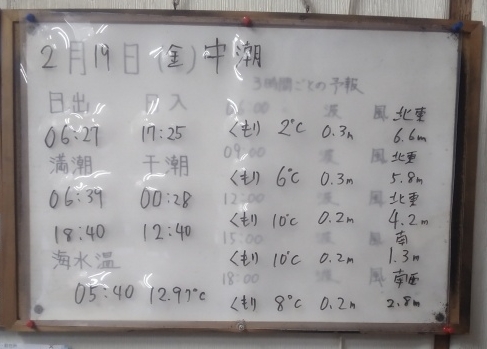 2月19日(金)中潮
3時間ごとの予報
日出 日入
06:27 17:25
満潮 干潮
06:39 00:28
18:40 12:40
海水温
05:40 12.97℃
06:00 波 風 北東
くもり 2℃ 0.3m 6.6m
09:00 波 風 北東
くもり 6℃ 0.3m 5.8m
12:00 波 風 北東
くもり 10℃ 0.2m 4.2m
15:00 波 風 南
くもり 10℃ 0.2m 1.3m
18:00 波 風 南西
くもり 8℃ 0.2m 2.8m